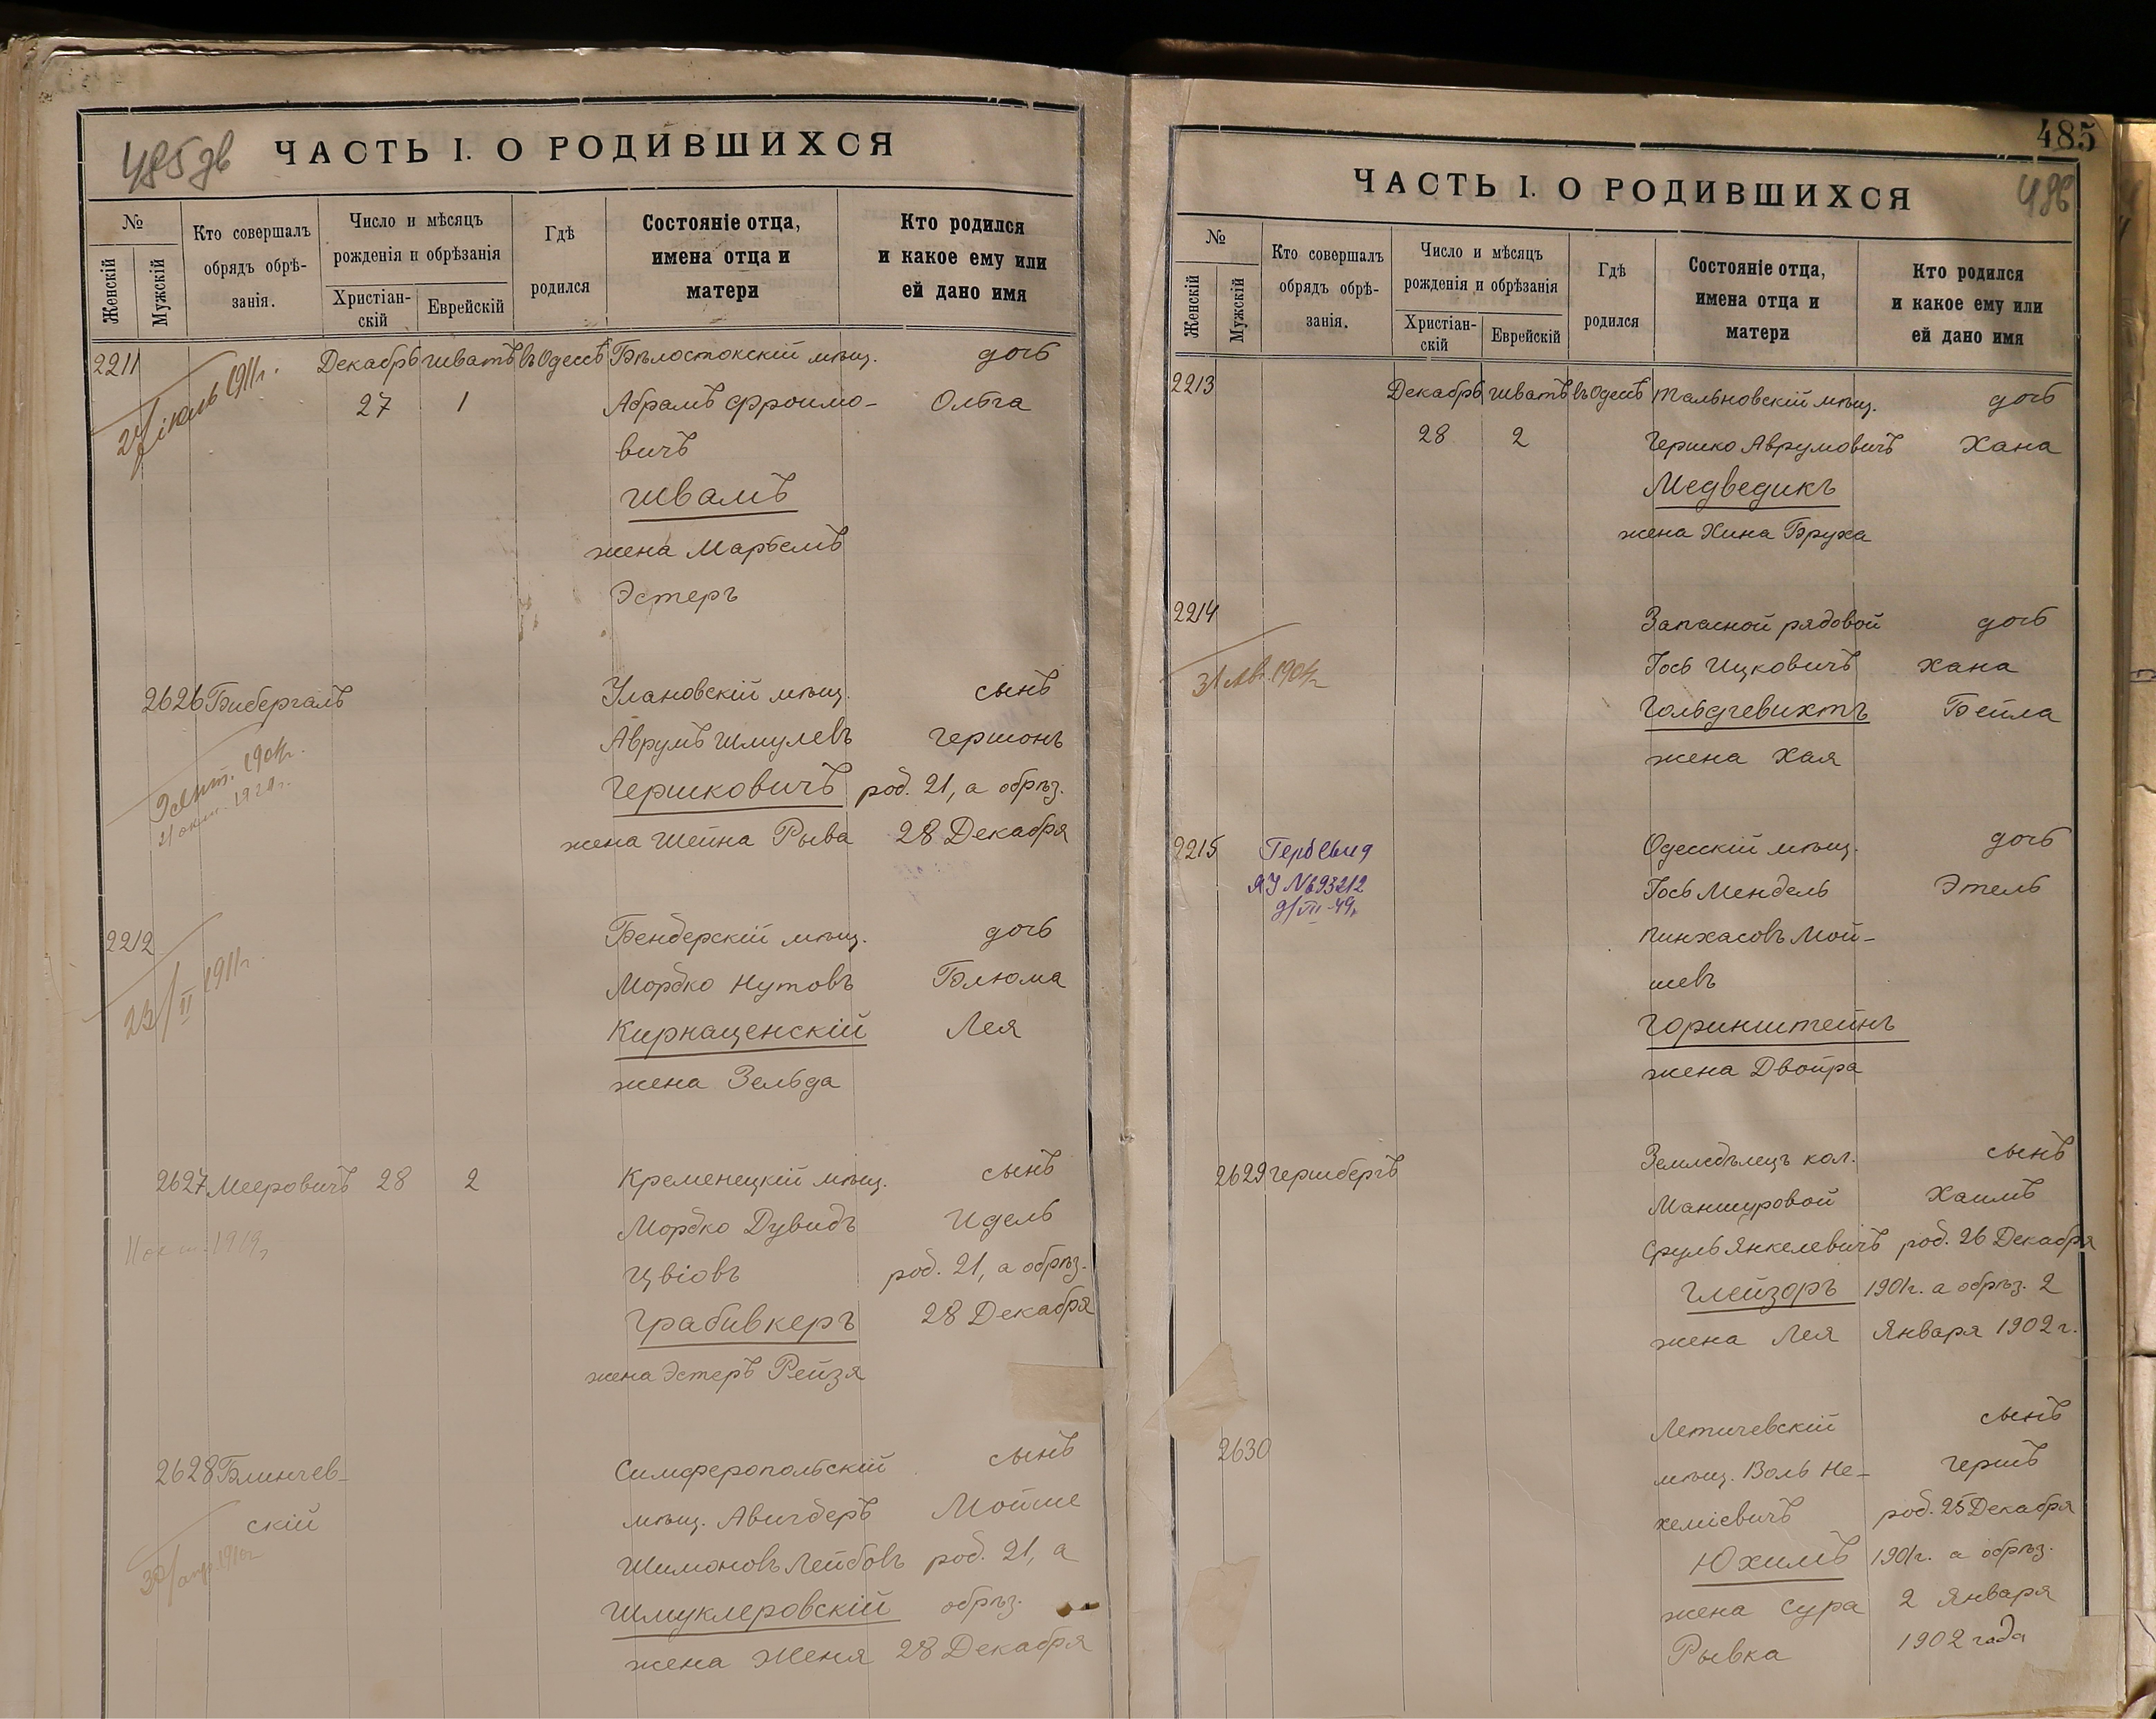 485 дв
ЧАСТЬ I. О РОДИВШИХСЯ
№
Женскій
Мужскій
Кто совершалъ
обрядъ обрѣ-
занія.
Число и мѣсяцъ
рожденія и обрѣзанія
Христіан-
скій
Еврейскій
Гдѣ
родился
Состояніе отца,
имена отца и
матери
Кто родился
и какое ему или
ей дано имя
2211 Декабрь Шватъ въ Одессѣ Бѣлостокскій мѣщ. дочь
27 1 Абрамъ Фроимо- Ольга
вичъ
Швамъ
жена Марьемъ
Эстеръ
іюль 1911г.
2626 Бибергалъ Улановскій мѣщ. сынъ
Аврумъ Шмулевъ Гершонъ
Гершковичъ род. 21, а обрѣз.
жена Шейна Рыва 28 Декабря
сент. 1904г.
21 окт. 1924г.
2212 Бендерскій мѣщ. дочь
Мордко Нутовъ Блюма
Кирнаценскій Лея
жена Зельда
23/II 1911г.
2627 Мееровичъ 28 2 Кременецкій мѣщ. сынъ
Мордко Дувидъ Идель
Цвіовъ род. 21, а обрѣз.
Грабивкеръ 28 Декабря
жена Эстеръ Рейзя
1919г
2628 Блинчев- Симферопольскій сынъ
скій мѣщ. Авигдеръ Мойше
Шимоновъ Лейбовъ род. 21, а
Шмуклеровскій обрѣз.
жена Женя 28 Декабря
30/апр. 1910г
485
486
ЧАСТЬ I. О РОДИВШИХСЯ
№
Женскій
Мужскій
Кто совершалъ
обрядъ обрѣ-
занія.
Число и мѣсяцъ
рожденія и обрѣзанія
Христіан-
скій
Еврейскій
Гдѣ
родился
Состояніе отца,
имена отца и
матери
Кто родился
и какое ему или
ей дано имя
2213 Декабрь Шватъ въ Одессѣ Тальновскій мѣщ. дочь
28 2 Гершко Аврумовичъ Хана
Медведикъ
жена Хина Бруха
2214 Запасной рядовой дочь
Іось Ицковичъ Хана
Гольдгевихтъ Бейла
жена Хая
31 Авг. 1904г
2215 Одесскій мѣщ. дочь
Іось Мендель Этель
Пинхасовъ Мой-
шевъ
Горинштейнъ
жена Двойра
ЯУ №693212
9/VII-49г
2629 Гершбергъ Земледѣлецъ кол. сынъ
Маншуровой Хаимъ
Сруль Янкелевичъ род. 26 Декабря
Глейзоръ 1901г. а обрѣз. 2
жена Лея Января 1902г.
2630 Летичевскій сынъ
мѣщ. Воль Не- Гершъ
хеміевичъ род. 25 Декабря
Юхимъ 1901г. а обрѣз.
жена Сура 2 Января
Рывка 1902 года